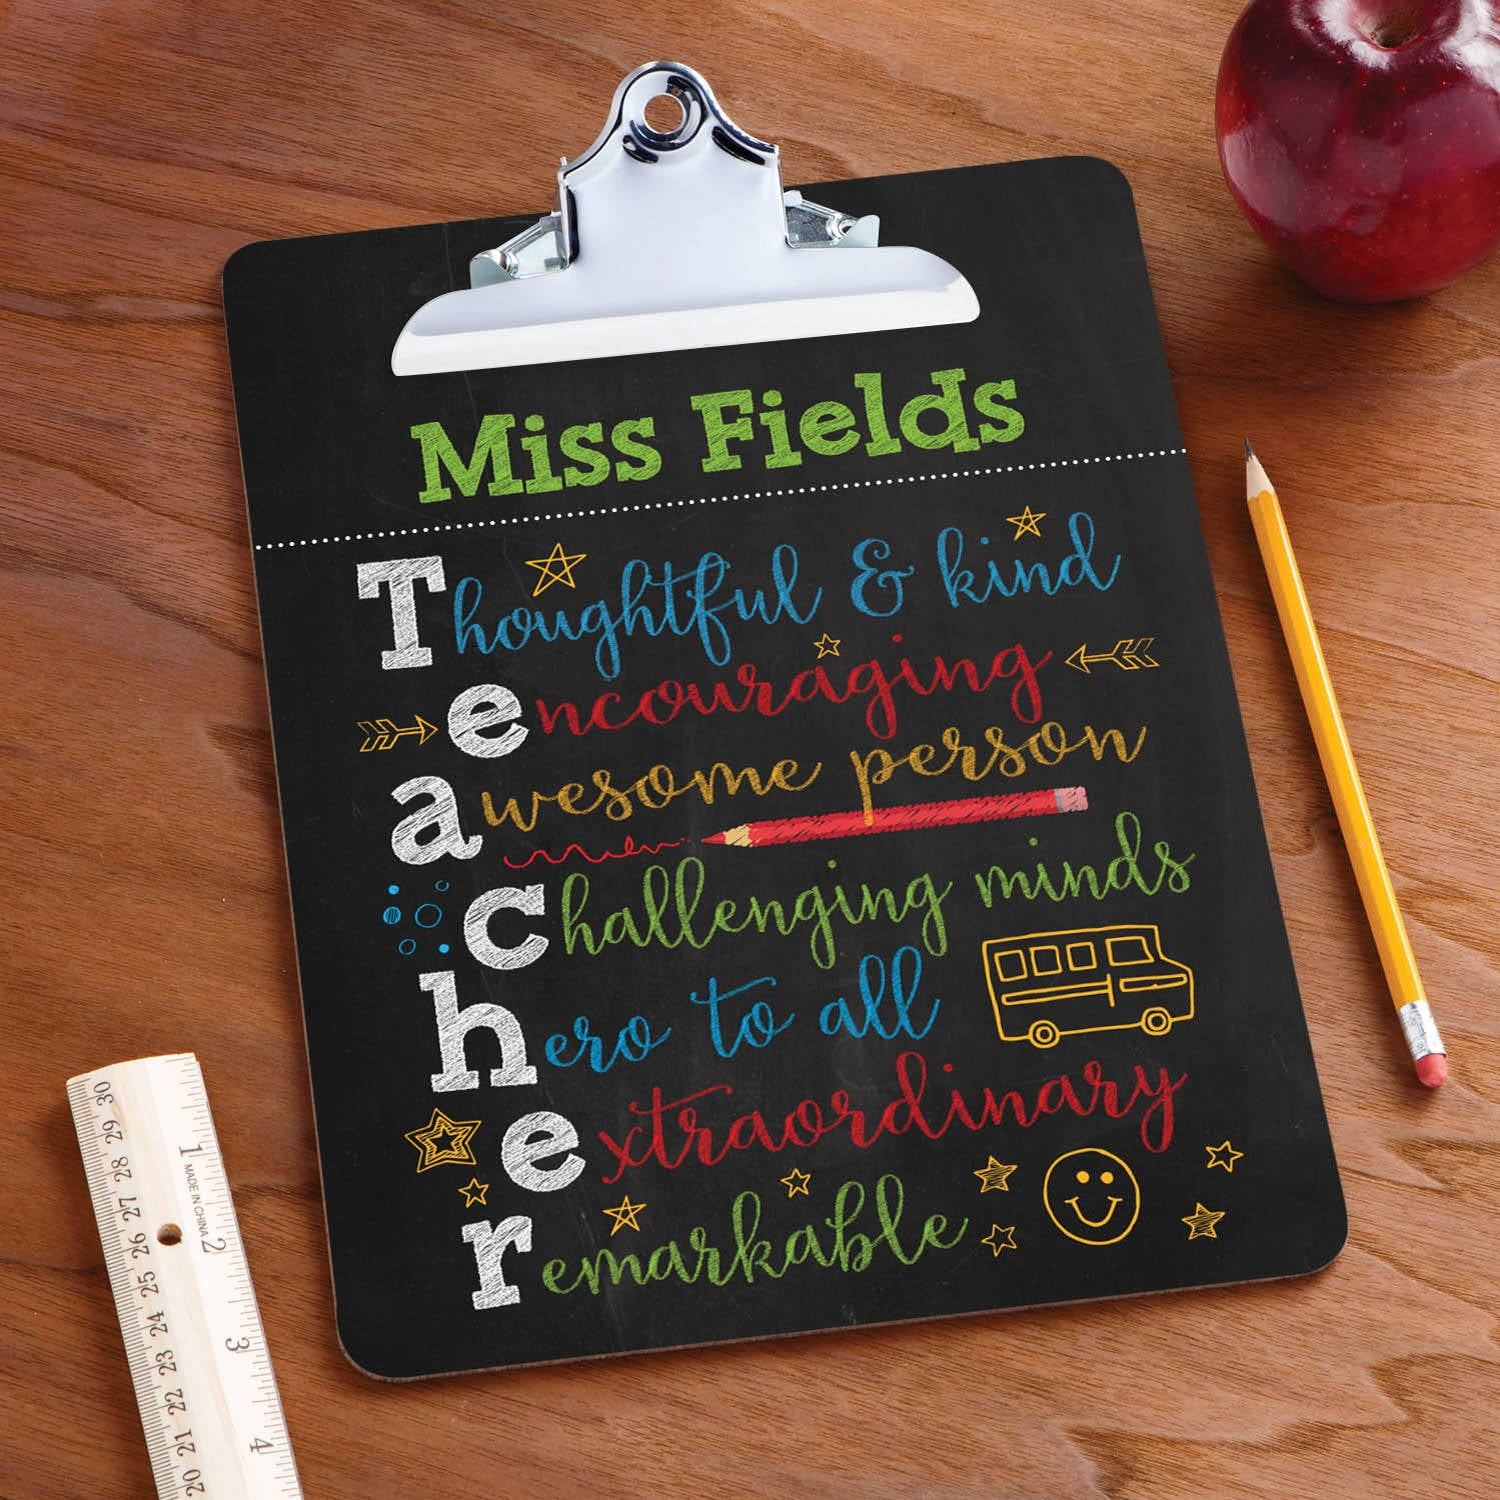 Miss Fields
Thoughtful & kind
encouraging
awesome person
challenging minds
hero to all
extraordinary
remarkable
30 29 28 27 26 25 24 23 22 21 20
1 2 3 4
MADE IN CHINA